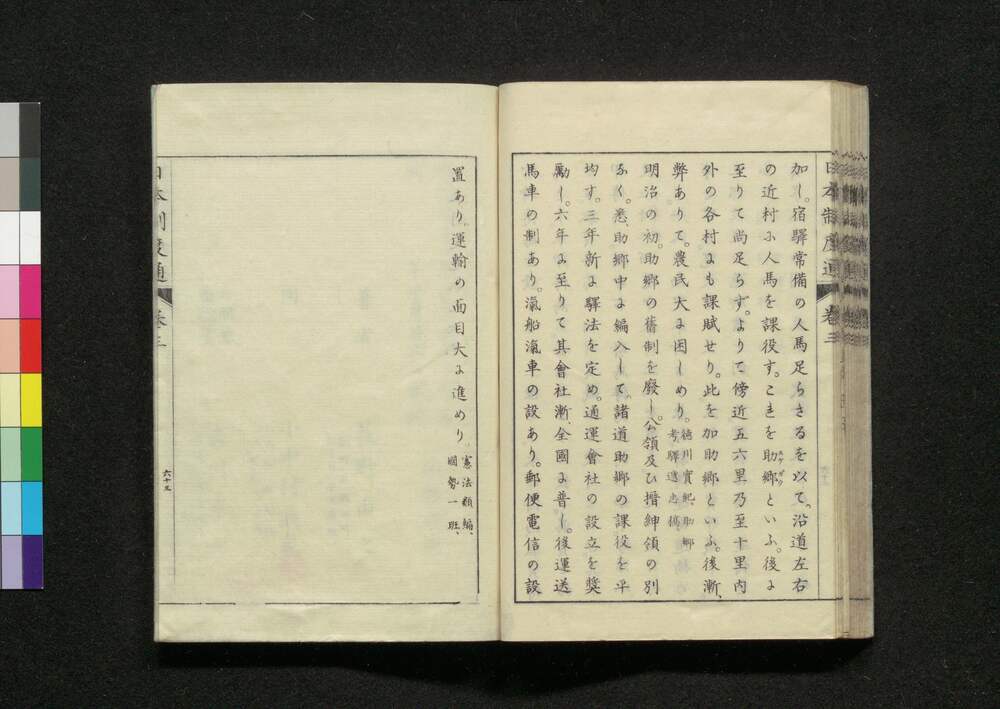 加し。宿驛常備の人馬足らさるを以て。沿道左右
の近村に人馬を課役す。これを助郷といふ。後に
至りて尚足らず。よりて傍近五六里乃至十里内
外の各村にも課賦せり。此を加助郷といふ。後漸、
弊ありて。農民大に困しめり。徳川實紀、助郷考、驛遞志稿、
明治の初。助郷の舊制を廢し。公領及ひ搢紳領の別
なく。悉、助郷中に編入して。諸道助郷の課役を平
均す。三年新に驛法を定め。通運會社の設立を獎
勵し。六年に至りて其會社漸、全國に普し。後運送
馬車の制あり。滊船滊車の設あり。郵便電信の設
置あり。運輸の面目大に進めり。憲法類編、國勢一班、
日本制度通
卷三
六十五
日本制度通
卷三